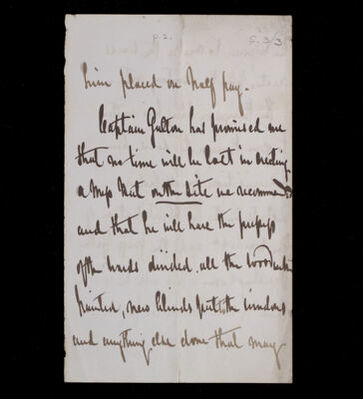 p.2.
him placed on half pay.
Captain Galton has promised me
that no time will be lost in erecting
a Mess Hut on the site we recommend
and that he will have the
of the huts divided, all the woodwork
painted, new blinds put to the windows
and anything else done that may